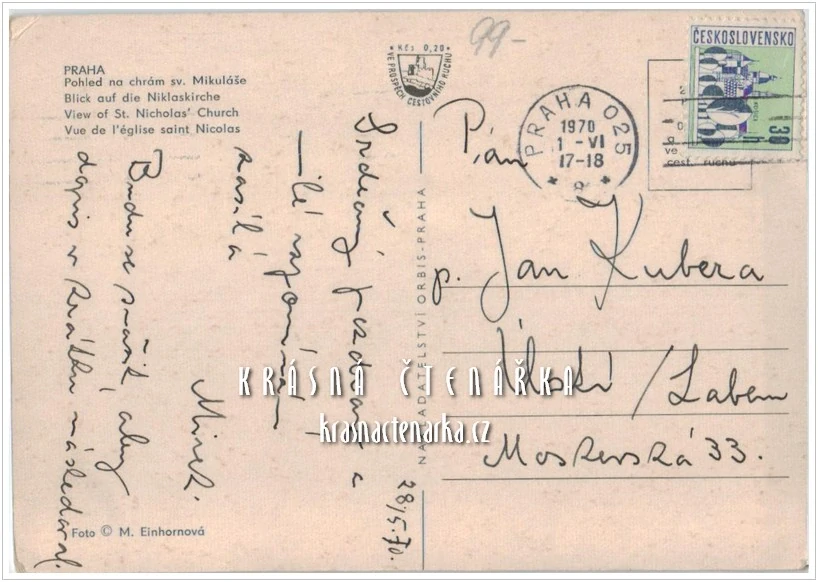 PRAHA
Pohled na chrám sv. Mikuláše
Blick auf die Niklaskirche
View of St. Nicholas' Church
Vue de l'église saint Nicolas
* Kčs 0,20 *
VE PROSPĚCH CESTOVNÍHO RUCHU
99-
ČESKOSLOVENSKO
30 h
PRAHA 025
1970
1 -VI
17-18
ve
cest. ruchu
Srdečný pozdrav a
milé vzpomínky
zasílá
Mirek.
Budu se snažit, aby
dopis v krátku následoval.
28/5.70.
NAKLADATELSTVÍ ORBIS-PRAHA
Pán
p. Jan Kubera
Ústí / Labem
Moskevská 33.
KRÁSNÁ ČTENÁŘKA
krasnactenarka.cz
Foto © M. Einhornová